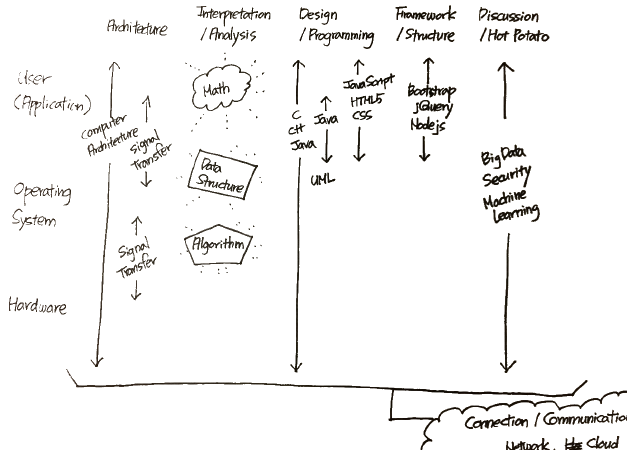 Architecture
Interpretation
/Analysis
Design
/Programming
Framework
/Structure
Discussion
/Hot Potato
User
(Application)
Operating
System
Hardware
Computer
Architecture
Signal
Transfer
Signal
Transfer
Math
Data
Structure
Algorithm
C
C++
Java
Java
UML
JavaScript
HTML5
CSS
Bootstrap
jQuery
Nodejs
Big Data
Security
Machine
Learning
Connection / Communication
Network,
Cloud